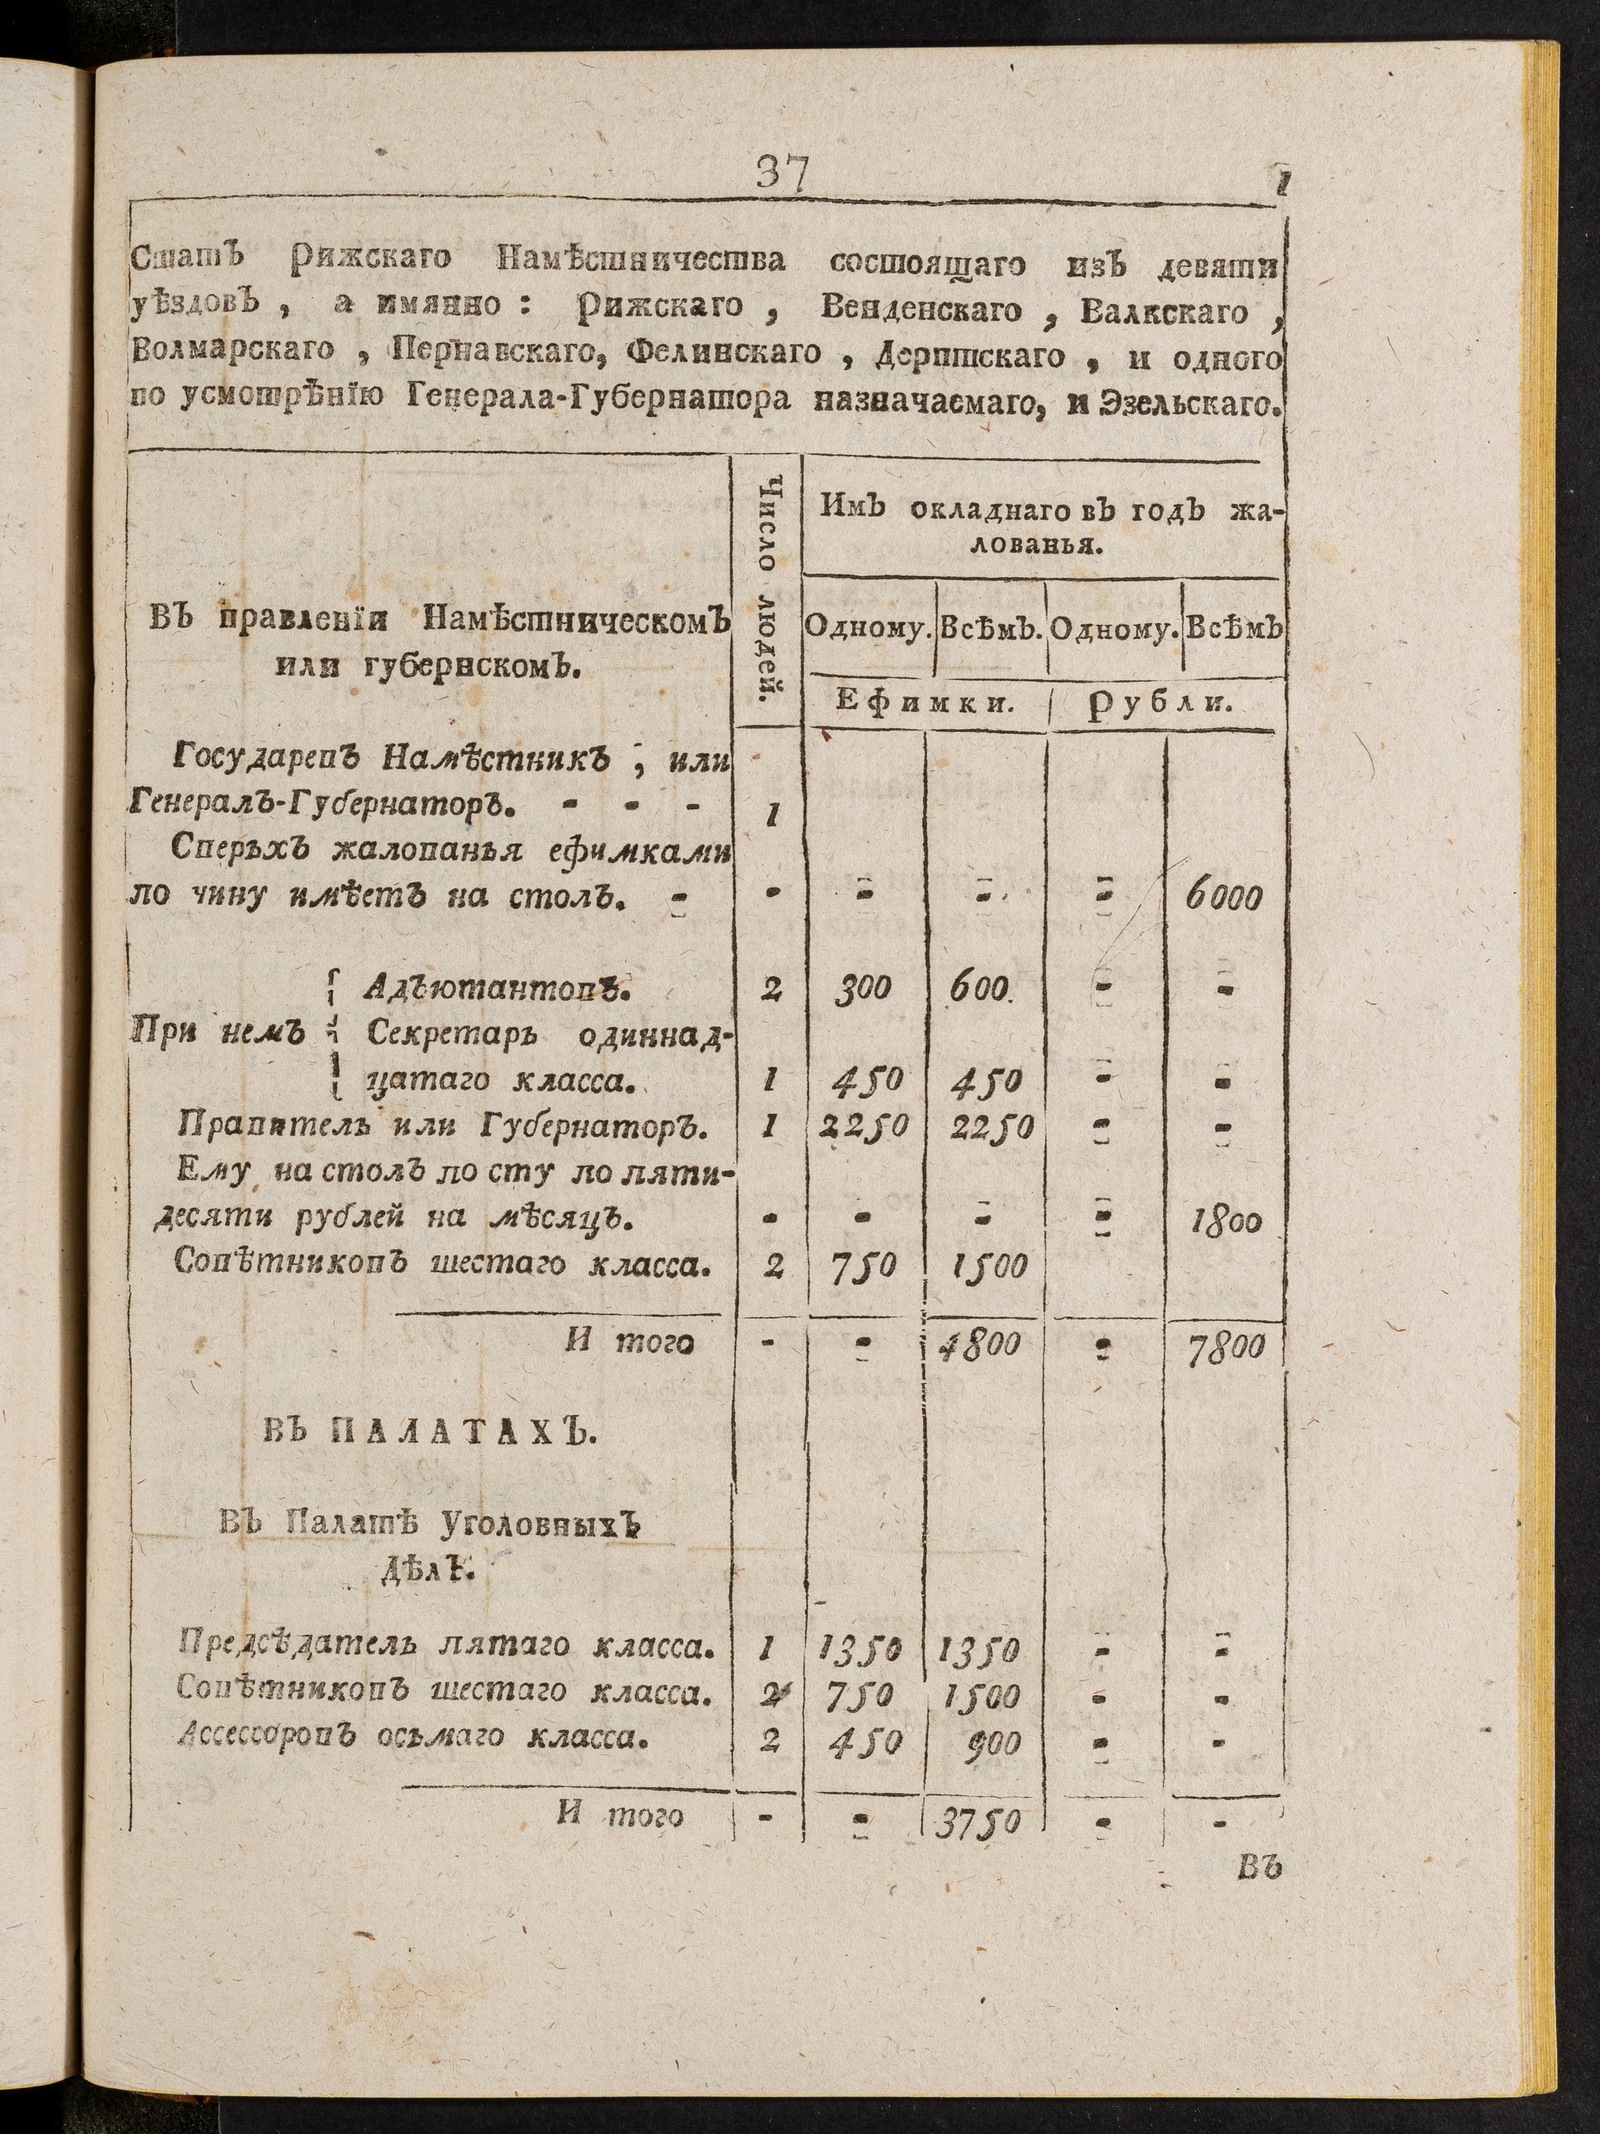 37
1
Статъ Рижскаго Намѣстничества состоящаго изъ девяти
уѣздовъ, а имянно: Рижскаго, Венденскаго, Валкскаго,
Волмарскаго, Пернавскаго, Фелинскаго, Дерптскаго, и одного
по усмотрѣнїю Генерала-Губернатора назначаемаго, и Эзельскаго.
Въ правленїи Намѣстническомъ
или губернскомъ.
Число людей.
Имъ окладнаго въ годъ жа-
лованья.
Одному. Всѣмъ. Одному. Всѣмъ
Ефимки. Рубли.
Государевъ Намѣстникъ, или
Генералъ-Губернаторъ. - - - 1
Сверьхъ жалованья ефимками
по чину имѣетъ на столъ. - - - - - 6000
Адъютантовъ. 2 300 600. - -
При немъ Секретарь одиннад-
цатаго класса. 1 450 450 - -
Правитель или Губернаторъ. 1 2250 2250 - -
Ему на столъ по сту по пяти-
десяти рублей на мѣсяцъ. - - - - 1800
Совѣтниковъ шестаго класса. 2 750 1500
И того - - 4800 - 7800
ВЪ ПАЛАТАХЪ.
Въ Палатѣ Уголовныхъ
дѣлъ.
Предсѣдатель пятаго класса. 1 1350 1350 - -
Совѣтниковъ шестаго класса. 2 750 1500 - -
Ассессоровъ осьмаго класса. 2 450 900 - -
И того - - 3750 - -
Въ